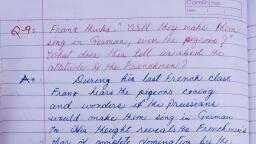 Q-9:- Franz thinks, "Will they make them
sing in German, even the pigeons?"
What does this tell us about the
attitude of the Frenchmen?
A:- During his last French class
Franz hears the pigeons cooing
and wonders if the Prussians
would make them sing in German
too. His thought reveals the Frenchmen's
fear of complete domination by the